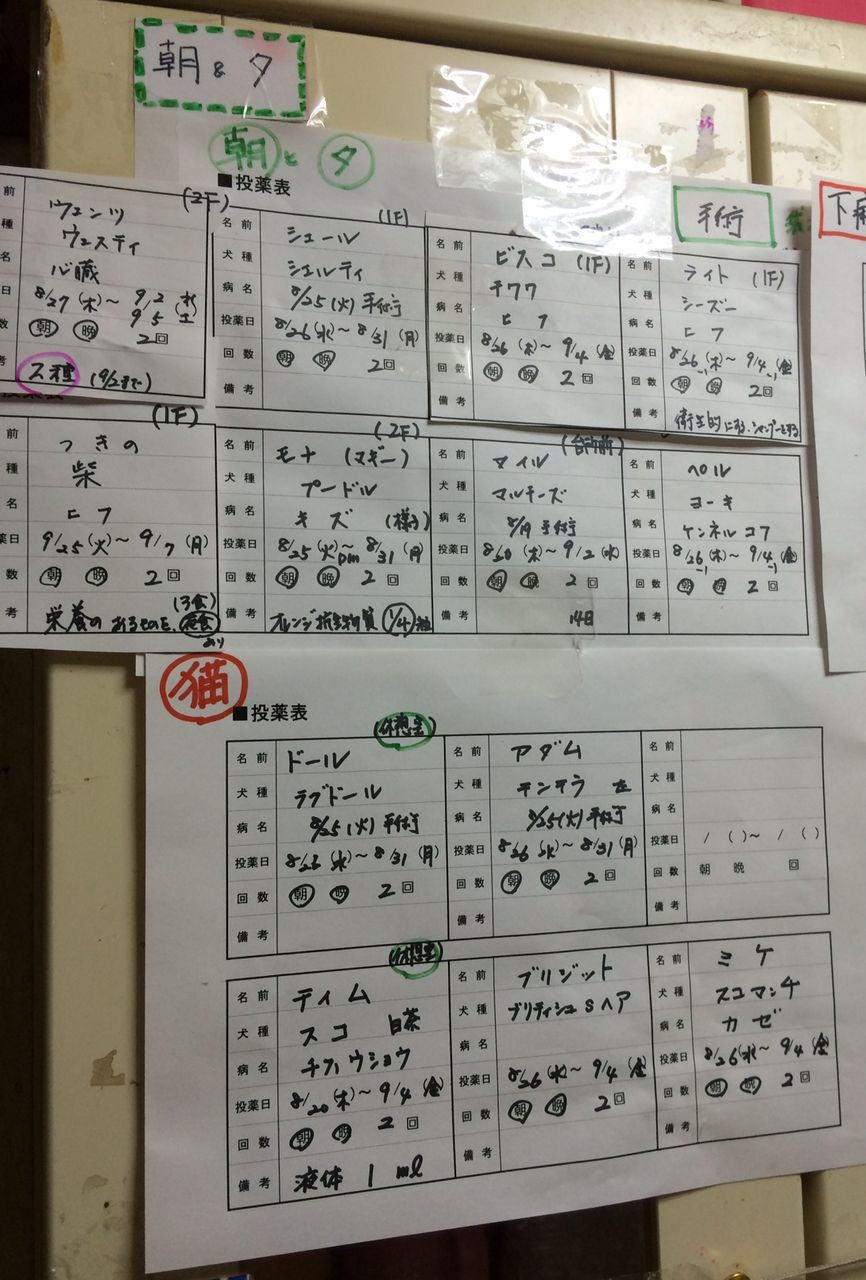 朝 & 夕
朝 と 夕
■投薬表
手術
(2F)
前 ウェンツ
種 ウェスティ
名 心臓
日 8/27(木)～ 9/2
9/5 土
数 朝 晩 2回
考 (9/2まで)
(1F)
名前 シェール
犬種 シェルティ
病名 8/25(火)手術
投薬日 8/26(水)～8/31(月)
回数 朝 晩 2回
備考
名前 ビスコ (1F)
犬種 チワワ
病名 ヒフ
投薬日 8/26(木)～ 9/4(金)
回数 朝 晩 2回
備考
名前 ライト (1F)
犬種 シーズー
病名 ヒフ
投薬日 8/26(木)～ 9/4(金)
回数 朝 晩 2回
備考 衛生的にする、シャンプーとする
(1F)
前 つきの
種 柴
名 ヒフ
薬日 9/25(火)～ 9/7(月)
数 朝 晩 2回
(3食)
考 栄養の あるものを、
あり
(2F)
名前 モナ (マギー)
犬種 プードル
病名 キズ (様子)
投薬日 8/25(火)PM～ 8/31(月)
回数 朝 晩 2回
備考 オレンジ 1/4
(台所前)
名前 マイル
犬種 マルチーズ
病名 8/19 手術
投薬日 8/20(木)～ 9/2(水)
回数 朝 晩 2回
備考 14日
名前 ベル
犬種 ヨーキ
病名 ケンネルコフ
投薬日 8/26(木)～ 9/4(金)
回数 朝 晩 2回
備考
猫
■投薬表
名前 ドール
犬種 ラグドール
病名 8/25(火)手術
投薬日 8/26(水)～8/31(月)
回数 朝 晩 2回
備考
名前 アダム
犬種 チンチラ
病名 8/25(火)手術
投薬日 8/26(水)～8/31(月)
回数 朝 晩 2回
備考
名前
犬種
病名
投薬日 / ( )～ / ( )
回数 朝 晩 回
備考
名前 ティム
犬種 スコ 白茶
病名 チョウショウ
投薬日 8/20(木)～ 9/4(金)
回数 朝 晩 2回
備考 液体 1 ml
名前 ブリジット
犬種 ブリティシュSヘア
病名
投薬日 8/26(水)～ 9/4(金)
回数 朝 晩 2回
備考
名前 ミケ
犬種 スコマンチ
病名 カゼ
投薬日 8/26(水)～ 9/4(金)
回数 朝 晩 2回
備考